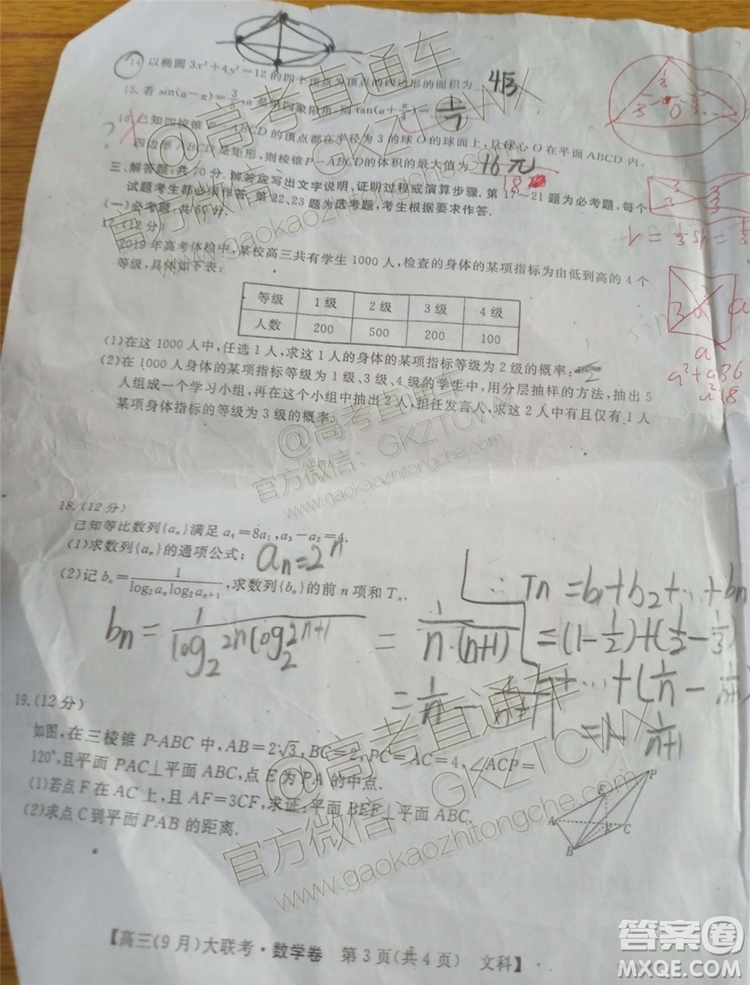 14. 以椭圆3x²+4y²=12的四个顶点为顶点的四边形的面积为 4√3
15. 若sin(α-π)=3/ α是第四象限角,则tan(α+π/4)= 1/7
16. 已知四棱锥P-ABCD的顶点都在半径为3的球O的球面上,且球心O在平面ABCD内,
四边形ABCD是矩形,则棱锥P-ABCD的体积的最大值为 16元
18
三、解答题:共70分. 解答应写出文字说明,证明过程或演算步骤. 第17~21题为必考题,每个
试题考生都必须作答. 第22、23题为选考题,考生根据要求作答.
(一)必考题:共60分.
(12分)
2019年高考体检中,某校高三共有学生1000人,检查的身体的某项指标为由低到高的4个
等级,具体如下表:
等级 1级 2级 3级 4级
人数 200 500 200 100
(1)在这1000人中,任选1人,求这1人的身体的某项指标等级为2级的概率;
(2)在1000人的身体的某项指标等级为1级、3级、4级的学生中,用分层抽样的方法,抽出5
人组成一个学习小组,再在这个小组中抽出2人,担任发言人,求这2人中有且仅有1人
某项身体指标的等级为3级的概率.
18.(12分)
已知等比数列{aₙ}满足a₄=8a₁,a₃-a₂=4.
(1)求数列{aₙ}的通项公式; an=2ⁿ
(2)记bₙ=1/(log₂aₙlog₂aₙ₊₁),求数列{bₙ}的前n项和Tₙ.
∴Tn=b1+b2+…+bn
bn=1/(log₂2ⁿlog₂2ⁿ⁺¹) = 1/(n·(n+1)) =(1-1/2)+(1/2-1/3)
=1/n - 1/n+1 +…+(1/n-1/n+1
=1-1/n+1
19.(12分)
如图,在三棱锥P-ABC中,AB=2√3,BC=2,PC=AC=4,∠ACP=
120°,且平面PAC⊥平面ABC,点E为PA的中点.
(1)若点F在AC上,且AF=3CF,求证:平面BEF⊥平面ABC.
(2)求点C到平面PAB的距离.
P
E
A
F
C
B
a²+a²36
a²18
@高考直通车
官方微信:GKZTCWX
www.gaokaozhitongche.com
@高考直通车
官方微信:GKZTCWX
www.gaokaozhitongche.com
@高考直通车
官方微信:GKZTCWX
www.gaokaozhitongche.com
【高三(9月)大联考·数学卷 第3页(共4页) 文科】
答案圈
MXQE.COM